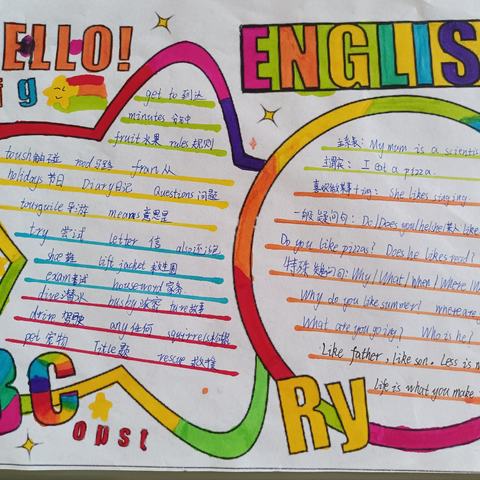 ELLO!
ENGLIS
g
get to 到达
minutes 分钟
fruit 水果 rules 规则
toush 触碰 road 马路 from 从
holidays 节日 Diary 日记 Questions 问题
tourguile 导游 means 意思是
try 尝试 letter 信 also 还
shoe 鞋 lift jacket 救生圈
exam 考试 houseword 家务
dives 潜水 husby
any 任何 squirrels 松鼠
pet 宠物 Title 题 rescue 救援
BC
opst
主系表: My mum is a scientis
主谓宾: I eat a pizza.
She likes singing.
一般疑问句: Do/Does you/he/she/某人 like
Do you like pizzas? Does he likes read?
特殊疑问句: Why/What/when/Where/W
Why do you like summer? where are
What are you going? Who is he?
Like father, like son. Less is m
Life is what you make
Ry